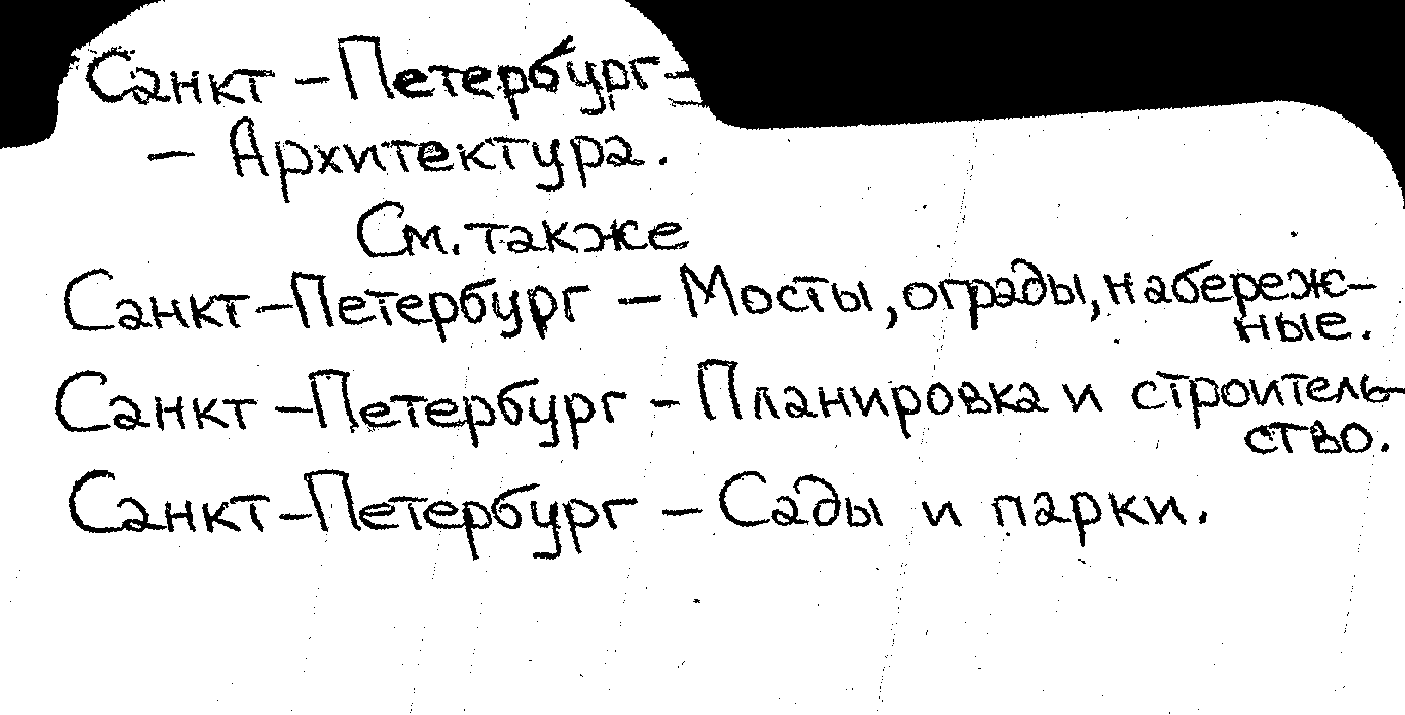 Санкт-Петербург-
- Архитектура.
См. также
Санкт-Петербург — Мосты, ограды, набереж-
ные.
Санкт-Петербург — Планировка и строитель-
ство.
Санкт-Петербург — Сады и парки.